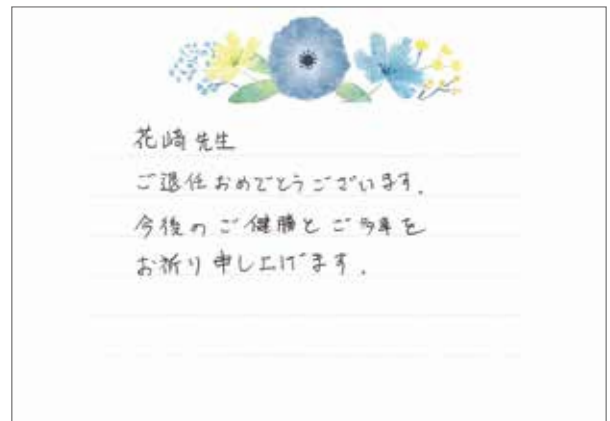 花崎先生
ご退任おめでとうございます.
今後のご健勝とご多幸を
お祈り申し上げます.